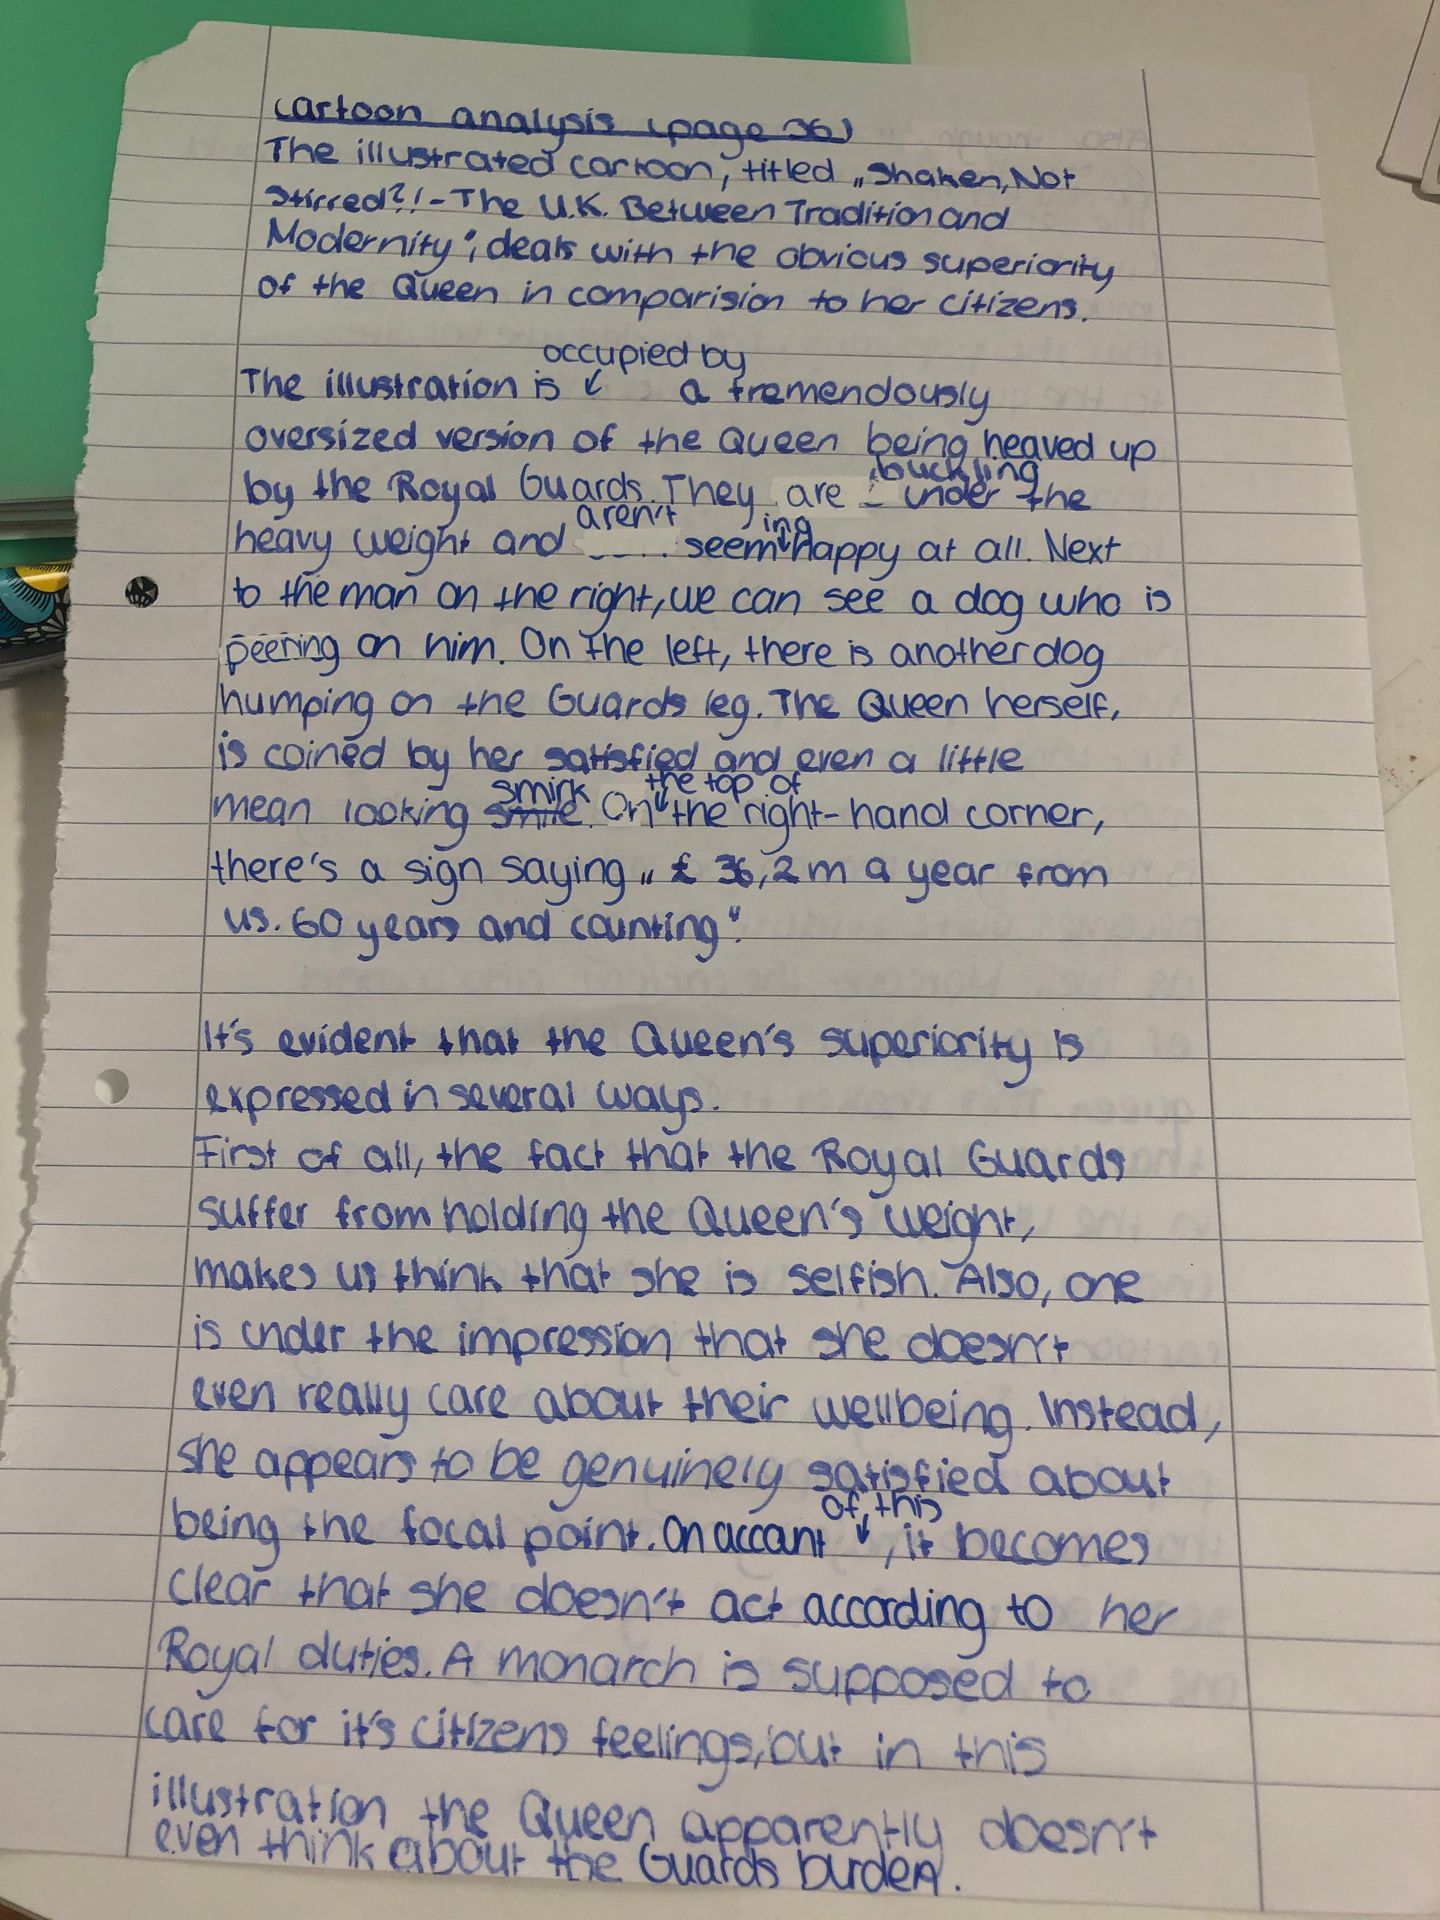 cartoon analysis (page 36)
The illustrated cartoon, titled „Shaken, Not
Stirred?! - The U.K. Between Tradition and
Modernity", deals with the obvious superiority
of the Queen in comparision to her citizens.
occupied by
The illustration is a tremendously
oversized version of the Queen being heaved up
by the Royal Guards. They are buckling under the
heavy weight and aren't seeming happy at all. Next
to the man on the right, we can see a dog who is
peering on him. On the left, there is another dog
humping on the Guards leg. The Queen herself,
is coined by her satisfied and even a little
mean looking smile smirk. On the top of the right-hand corner,
there's a sign saying „£ 36,2 m a year from
us. 60 years and counting".
It's evident that the Queen's superiority is
expressed in several ways.
First of all, the fact that the Royal Guards
suffer from holding the Queen's weight,
makes us think that she is selfish. Also, one
is under the impression that she doesn't
even really care about their wellbeing. Instead,
she appears to be genuinely satisfied about
being the focal point. On accant of this, it becomes
clear that she doesn't act according to her
Royal duties. A monarch is supposed to
care for it's citizens feelings, but in this
illustration the Queen apparently doesn't
even think about the Guards burden.